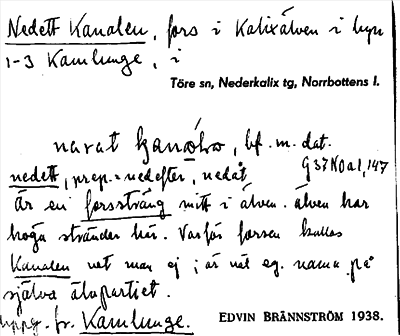 Nedett Kanalen, fors i Kalixälven i byn
1-3 Kamlunge, i
Töre sn, Nederkalix tg, Norrbottens l.
navat bf. m. dat.
nedett, prep. = nedefter, nedåt G 37 N 0 a 1, 147
Är en forssträng mitt i älven. Älven har
höga stränder här. Varför forsen kallas
Kanalen vet man ej; är väl eg. namn på
själva älvpartiet.
Uppg. fr. Kamlunge. EDVIN BRÄNNSTRÖM 1938.